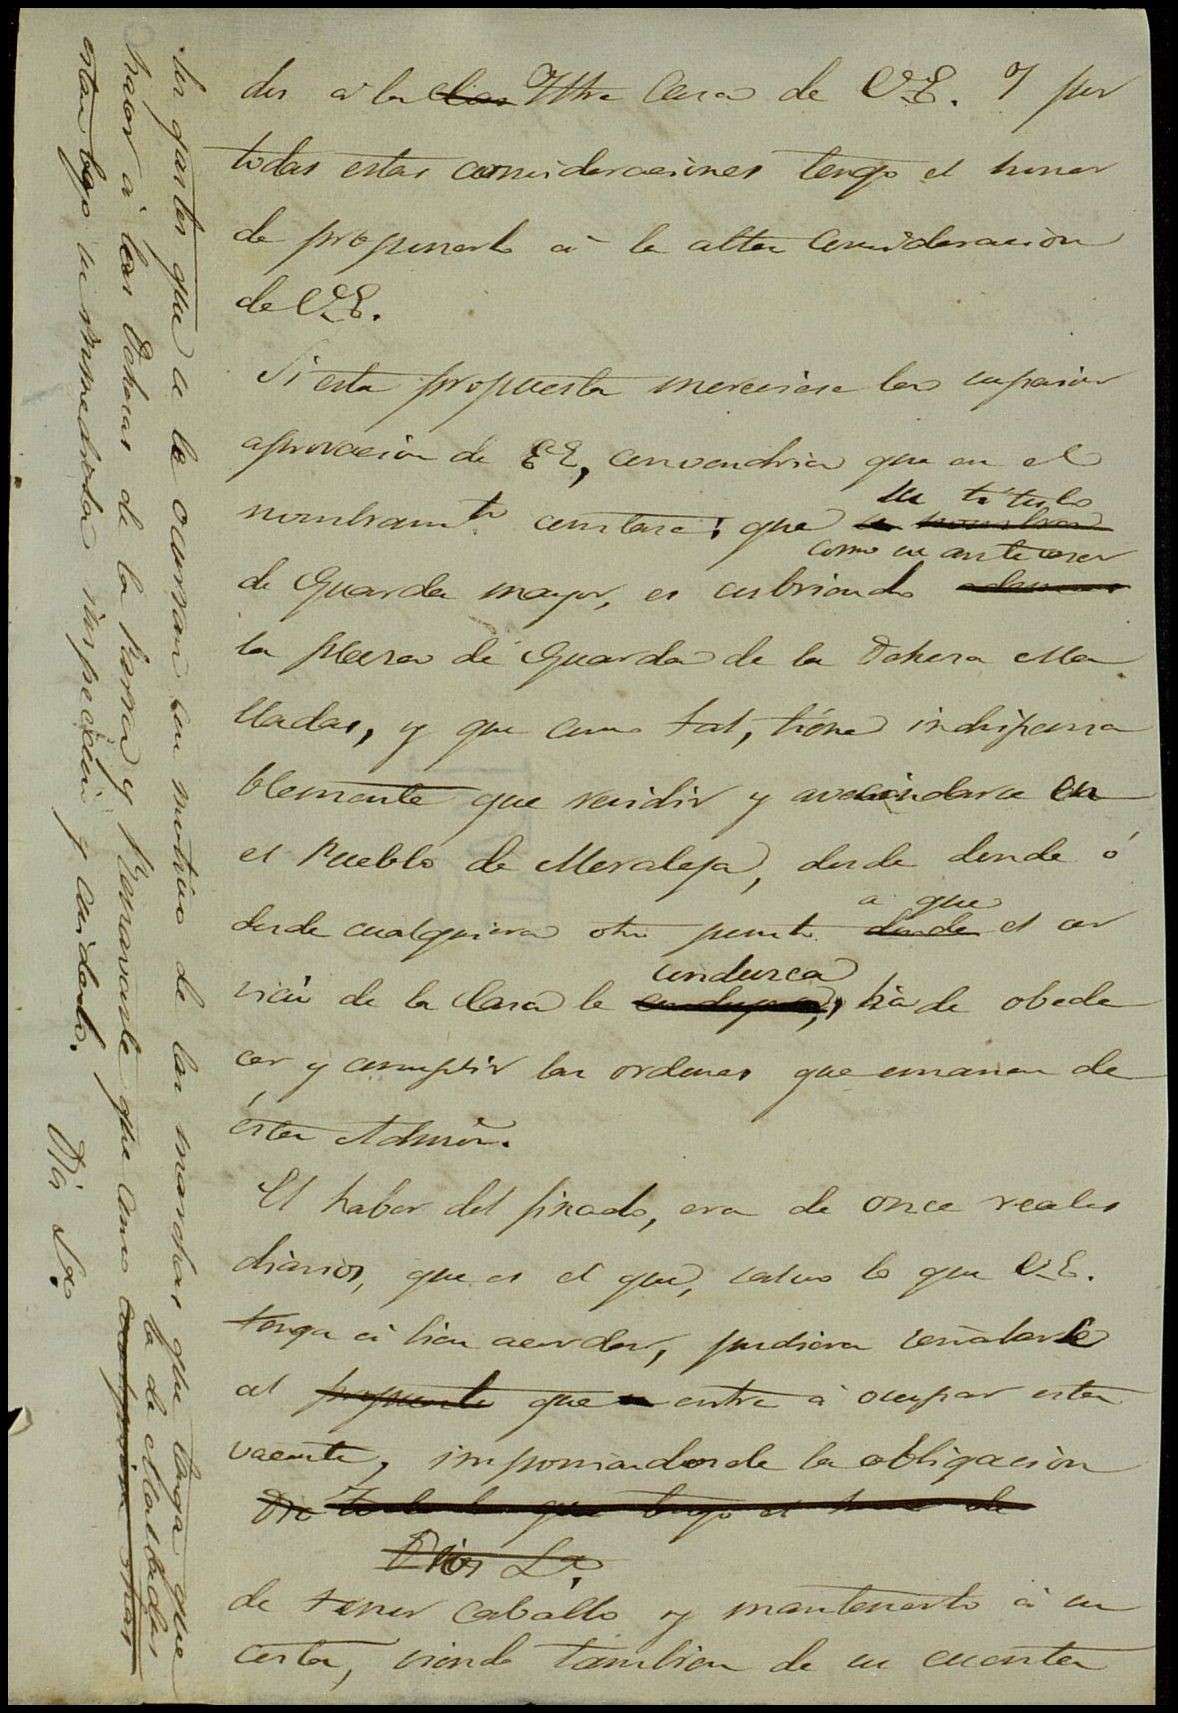 des á la Iltre Casa de V.E. Y por
todas estas consideraciones tengo el honor
de proponerlo á la alta consideracion
de V.E.
Si esta propuesta mereciese la superior
aprovacion de V.E, convendria que en el
nombramto constase; que su titulo
de Guarda mayor, es cubriendo como su antecesor
la plaza de Guarda de la Dehesa Ma
lladas, y que como tal, tiene indispensa
blemente que residir y avecindarse en
el Pueblo de Moraleja, desde donde ó
desde cualquiera otro punto a que el ser
vicio de la Casa le conduzca, há de obede
cer y cumplir las ordenes que emanen de
ésta Admon.
El haber del finado, era de once reales
diarios, que es el que, salvo lo que V.E.
tenga á bien acordar, pudiera señalarse
al que entre á ocupar esta
vacante, imponiendosele la obligacion
Dios Le.
de tener caballo y mantenerlo á su
costa, siendo tambien de su cuenta
los gastos que se le ocurran con motivo de las marchas que tenga que
hacer á las Dehesas de la Parra y Benavente que como la de Malladas
estan bajo su inmediata inspeccion y cuidado. Ds Le.